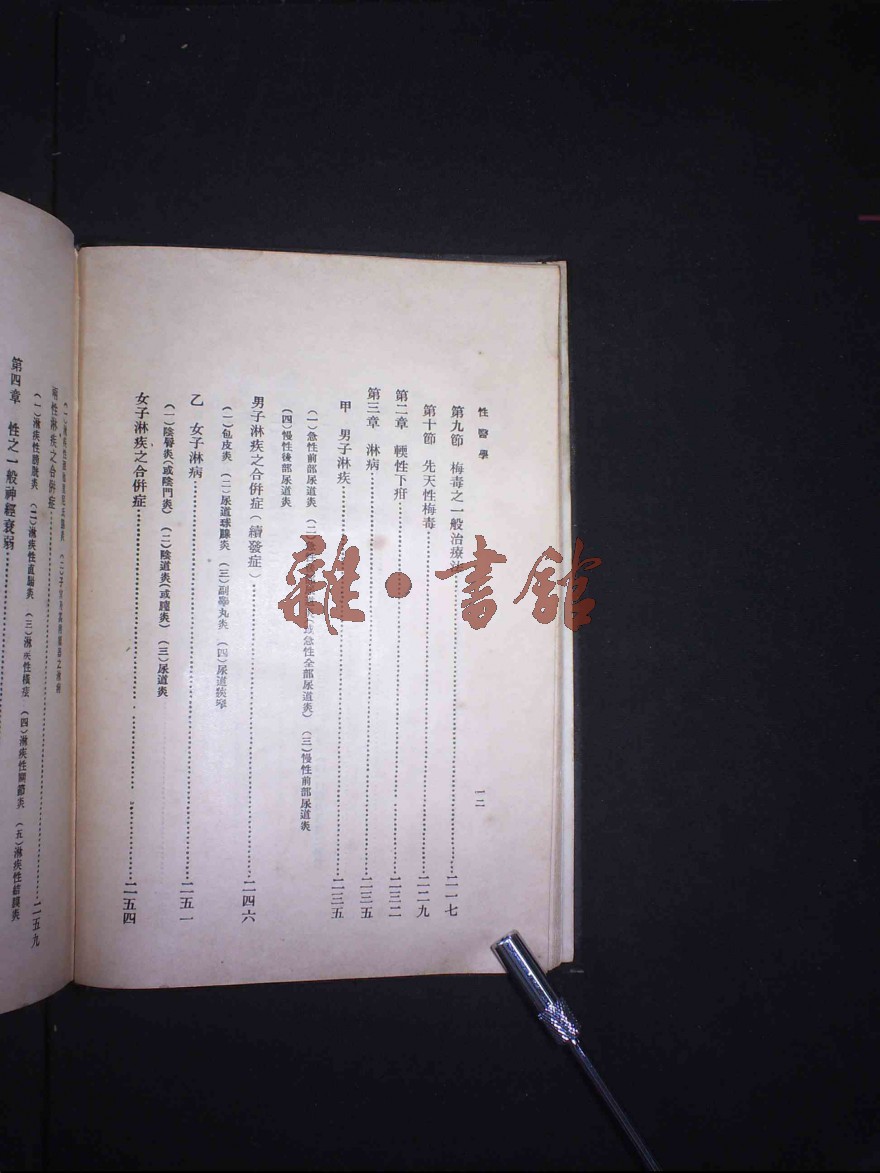 性醫學
一二
第九節　梅毒之一般治療法………二一七
第十節　先天性梅毒………二二九
第二章　輭性下疳………二三二
第三章　淋病………二三五
甲　男子淋疾………二三五
（一）急性前部尿道炎　（二）急性全部尿道炎）　（三）慢性前部尿道炎
（四）慢性後部尿道炎
男子淋疾之合併症（續發症）………二四六
（一）包皮炎　（二）尿道球腺炎　（三）副睾丸炎　（四）尿道狹窄
乙　女子淋病………二五一
（一）陰唇炎（或陰門炎）　（二）陰道炎（或膣炎）　（三）尿道炎
女子淋疾之合併症………二五四
兩性淋疾之合併症………二五九
（一）淋疾性膀胱炎　（二）淋疾性直腸炎　（三）淋疾性橫痃　（四）淋疾性關節炎　（五）淋疾性結膜炎
第四章　性之一般神經衰弱………
雜·書館